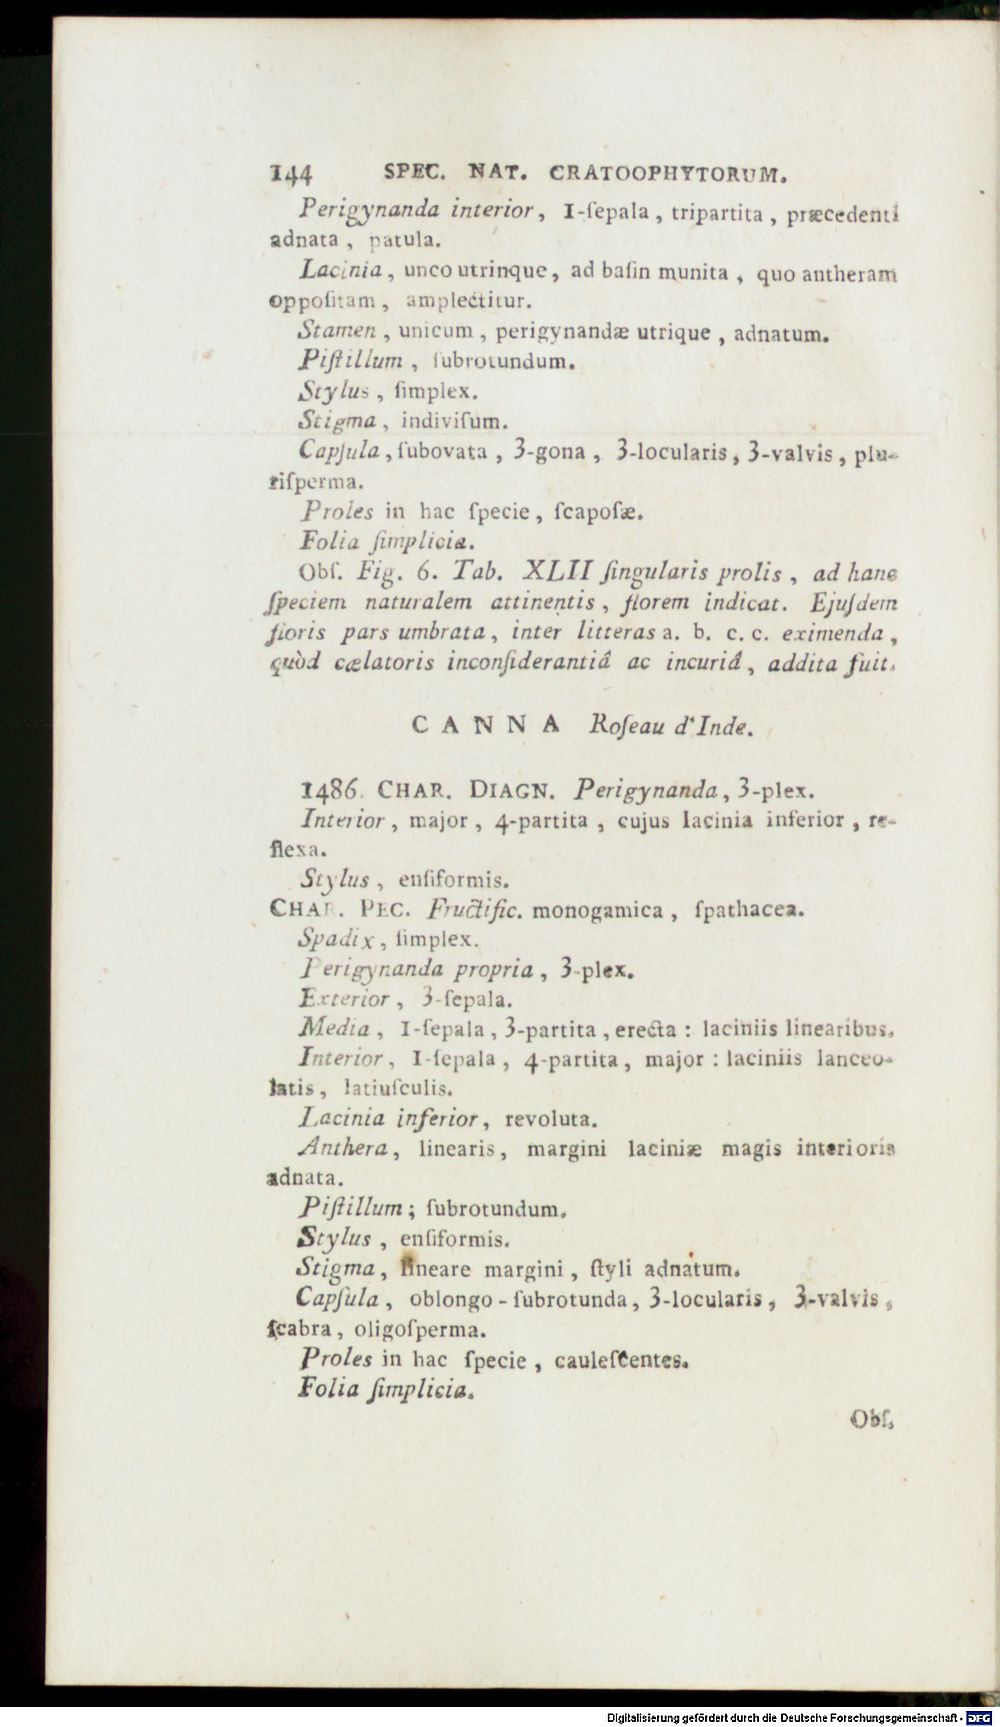 144 SPEC. NAT. CRATOOPHYTORUM.
Perigynanda interior, 1-ſepala, tripartita, præcedenti
adnata, patula.
Lacinia, unco utrinque, ad baſin munita, quo antheram
oppoſitam, amplectitur.
Stamen, unicum, perigynandæ utrique, adnatum.
Piſtillum, ſubrotundum.
Stylus, ſimplex.
Stigma, indiviſum.
Capſula, ſubovata, 3-gona, 3-locularis, 3-valvis, plu-
riſperma.
Proles in hac ſpecie, ſcapoſæ.
Folia ſimplicia.
Obſ. Fig. 6. Tab. XLII ſingularis prolis, ad hanc
ſpeciem naturalem attinentis, florem indicat. Ejuſdem
floris pars umbrata, inter litteras a. b. c. c. eximenda,
quòd cælatoris inconſiderantiâ ac incuriâ, addita fuit.
CANNA Roſeau d'Inde.
1486. CHAR. DIAGN. Perigynanda, 3-plex.
Interior, major, 4-partita, cujus lacinia inferior, re-
flexa.
Stylus, enſiformis.
CHAR. PEC. Fructific. monogamica, ſpathacea.
Spadix, ſimplex.
Perigynanda propria, 3-plex.
Exterior, 3-ſepala.
Media, 1-ſepala, 3-partita, erecta: laciniis linearibus.
Interior, 1-ſepala, 4-partita, major: laciniis lanceo-
latis, latiuſculis.
Lacinia inferior, revoluta.
Anthera, linearis, margini laciniæ magis interioris
adnata.
Piſtillum; ſubrotundum.
Stylus, enſiformis.
Stigma, lineare margini, ſtyli adnatum.
Capſula, oblongo-ſubrotunda, 3-locularis, 3-valvis,
ſcabra, oligoſperma.
Proles in hac ſpecie, cauleſcentes.
Folia ſimplicia.
Obſ.
Digitalisierung gefördert durch die Deutsche Forschungsgemeinschaft - DFG